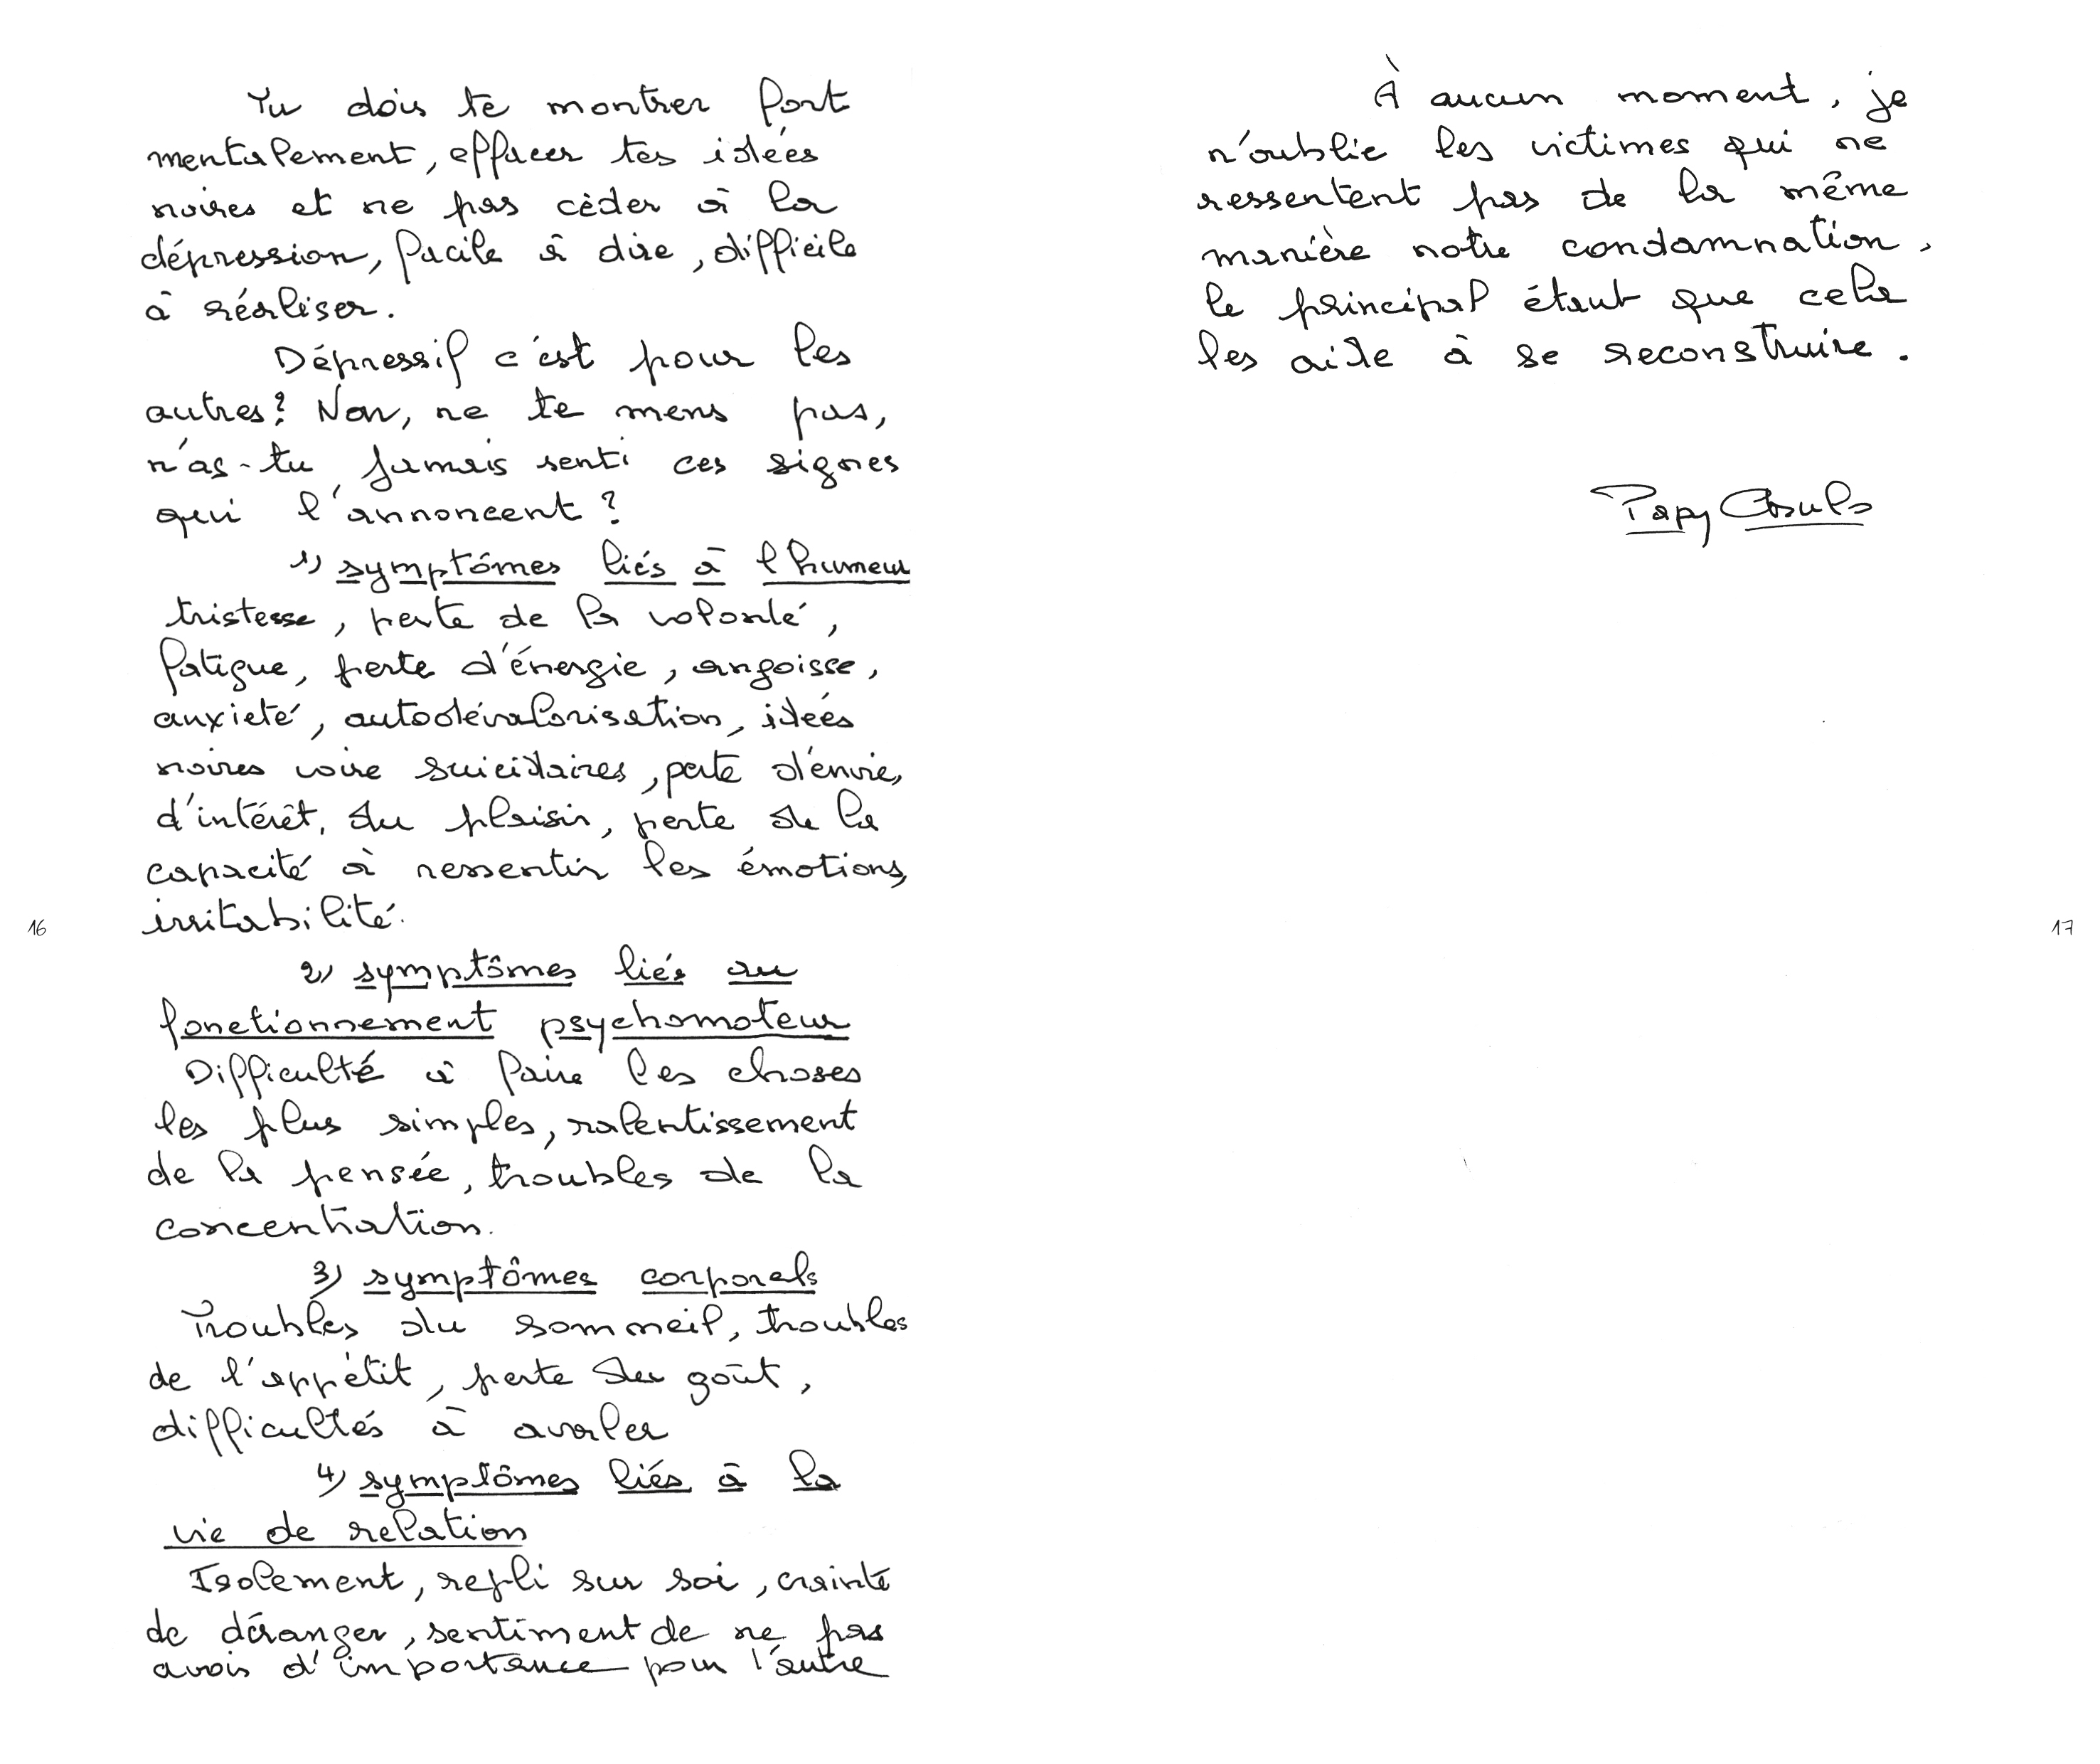 Tu dois te montrer fort
mentalement, effacer tes idées
noires et ne pas céder à la
dépression, facile à dire, difficile
à réaliser.
Dépressif c'est pour les
autres? Non, ne te mens pas,
n'as-tu jamais senti ces signes
qui l'annoncent?
1) symptômes liés à l'humeur
tristesse, perte de la volonté,
fatigue, perte d'énergie, angoisse,
anxieté, autodévalorisation, idées
noires voire suicidaires, perte d'envie,
d'intérêt, du plaisir, perte de la
capacité à ressentir les émotions,
irritabilité.
2) symptômes liés au
fonctionnement psychomoteur
Difficulté à faire les choses
les plus simples, ralentissement
de la pensée, troubles de la
concentration.
3) symptômes corporels
Troubles du sommeil, troubles
de l'appétit, perte du goût,
difficultés à avaler
4) symptômes liés à la
vie de relation
Isolement, repli sur soi, crainte
de déranger, sentiment de ne pas
avoir d'importance pour l'autre
16
À aucun moment, je
n'oublie les victimes qui ne
ressentent pas de la même
manière notre condamnation,
le principal étant que cela
les aide à se reconstruire.
Papy
17